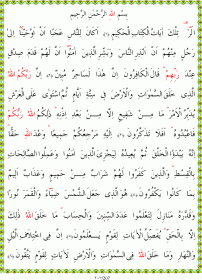 بِسْمِ اللَّهِ الرَّحْمَنِ الرَّحِيمِ
الٓرۚ تِلْكَ آيَاتُ الْكِتَابِ الْحَكِيمِ ﴿١﴾ أَكَانَ لِلنَّاسِ عَجَبًا أَنْ أَوْحَيْنَا إِلَى
رَجُلٍ مِنْهُمْ أَنْ أَنْذِرِ النَّاسَ وَبَشِّرِ الَّذِينَ آمَنُوا أَنَّ لَهُمْ قَدَمَ صِدْقٍ
عِنْدَ رَبِّهِمْ قَالَ الْكَافِرُونَ إِنَّ هَذَا لَسَاحِرٌ مُبِينٌ ﴿٢﴾ إِنَّ رَبَّكُمُ اللَّهُ
الَّذِي خَلَقَ السَّمَاوَاتِ وَالْأَرْضَ فِي سِتَّةِ أَيَّامٍ ثُمَّ اسْتَوَى عَلَى الْعَرْشِ
يُدَبِّرُ الْأَمْرَ مَا مِنْ شَفِيعٍ إِلَّا مِنْ بَعْدِ إِذْنِهِ ذَلِكُمُ اللَّهُ رَبُّكُمْ
فَاعْبُدُوهُ أَفَلَا تَذَكَّرُونَ ﴿٣﴾ إِلَيْهِ مَرْجِعُكُمْ جَمِيعًا وَعْدَ اللَّهِ حَقًّا
إِنَّهُ يَبْدَأُ الْخَلْقَ ثُمَّ يُعِيدُهُ لِيَجْزِيَ الَّذِينَ آمَنُوا وَعَمِلُوا الصَّالِحَاتِ
بِالْقِسْطِ وَالَّذِينَ كَفَرُوا لَهُمْ شَرَابٌ مِنْ حَمِيمٍ وَعَذَابٌ أَلِيمٌ
بِمَا كَانُوا يَكْفُرُونَ ﴿٤﴾ هُوَ الَّذِي جَعَلَ الشَّمْسَ ضِيَاءً وَالْقَمَرَ نُورًا
وَقَدَّرَهُ مَنَازِلَ لِتَعْلَمُوا عَدَدَ السِّنِينَ وَالْحِسَابَ مَا خَلَقَ اللَّهُ ذَلِكَ
إِلَّا بِالْحَقِّ يُفَصِّلُ الْآيَاتِ لِقَوْمٍ يَعْلَمُونَ ﴿٥﴾ إِنَّ فِي اخْتِلَافِ اللَّيْلِ
وَالنَّهَارِ وَمَا خَلَقَ اللَّهُ فِي السَّمَاوَاتِ وَالْأَرْضِ لَآيَاتٍ لِقَوْمٍ يَتَّقُونَ ﴿٦﴾